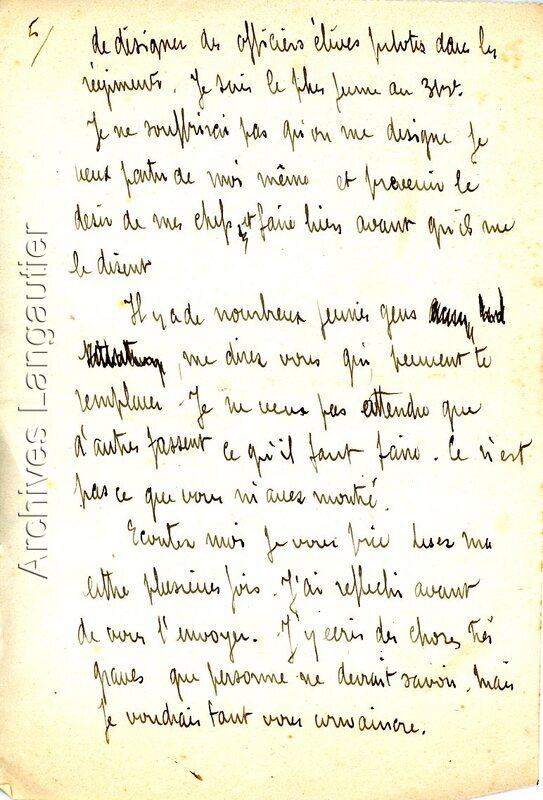 5/
de désigner des officiers élèves pilotes dans les
régiments. Je suis le plus jeune au
Je ne souffrirai pas qu'on me designe Je
veux partir de moi même et prevenir le
desir de mes chefs et faire bien avant qu'ils me
le disent
Il y a de nombreux jeunes gens
, me direz vous qui peuvent te
remplacer - Je ne veux pas attendre que
d'autres fassent ce qu'il faut faire. Ce n'est
pas ce que vous m'avez montré.
Ecoutez moi Je vous prie lisez ma
lettre plusieurs fois. J'ai reflechi avant
de vous l'envoyer. J'y ecris des choses très
graves que personne ne devrait savoir. Mais
Je voudrais tant vous convaincre.
Archives Langautier